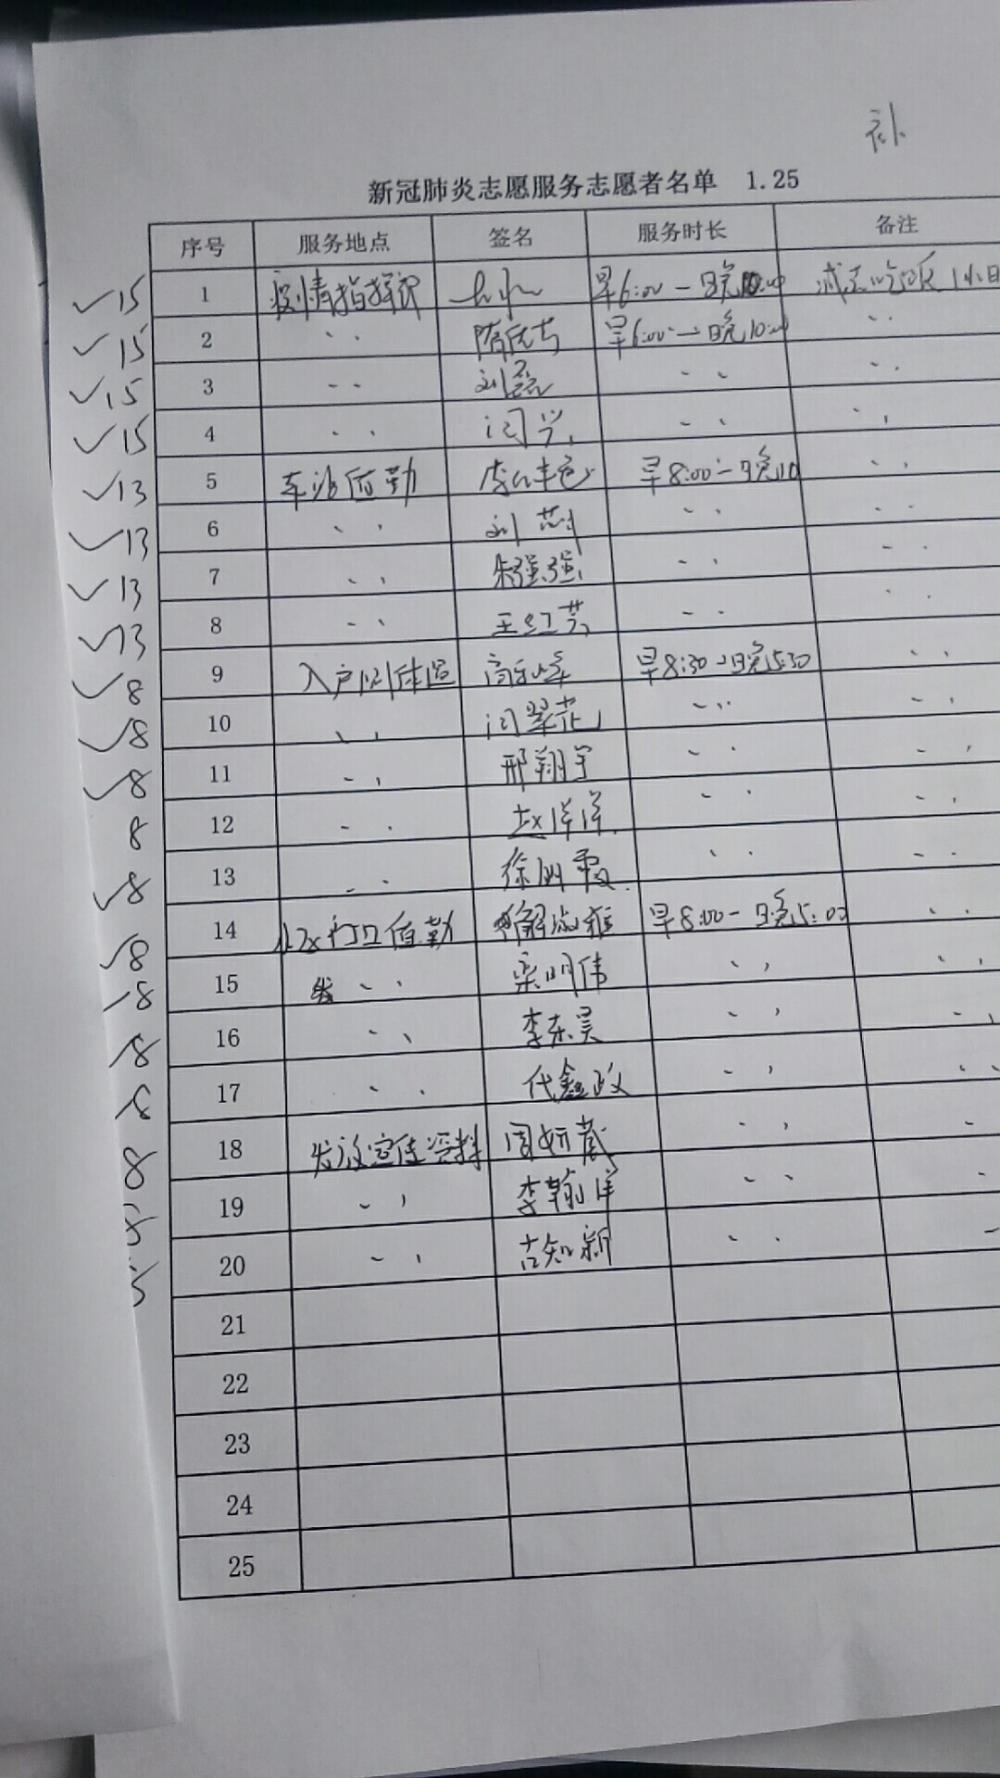 补
新冠肺炎志愿服务志愿者名单 1.25
序号 服务地点 签名 服务时长 备注
✓15 1 疫情指挥部 早6:00-晚10:00 减去吃饭1小时
✓15 2 〃 早6:00-晚10:00 〃
✓15 3 〃 刘磊 〃 〃
✓15 4 〃 闫兴 〃 〃
✓13 5 车站值勤 早8:00-晚10 〃
✓13 6 〃 刘 〃 〃
✓13 7 〃 朱强强 〃 〃
✓13 8 〃 王红芳 〃 〃
✓8 9 入户 早8:30-晚5:30 〃
✓8 10 〃 闫翠花 〃 〃
✓8 11 〃 邢翔宇 〃 〃
8 12 〃 赵洋洋 〃 〃
✓8 13 〃 徐明霞 〃 〃
✓8 14 值勤 早8:00-晚5:00 〃
✓8 15 〃 栾明伟 〃 〃
✓8 16 〃 李东昊 〃 〃
✓8 17 〃 代鑫政 〃 〃
8 18 发放宣传资料 周妍葳 〃
19 〃 李翰洋 〃
20 〃 古知颖 〃
21
22
23
24
25